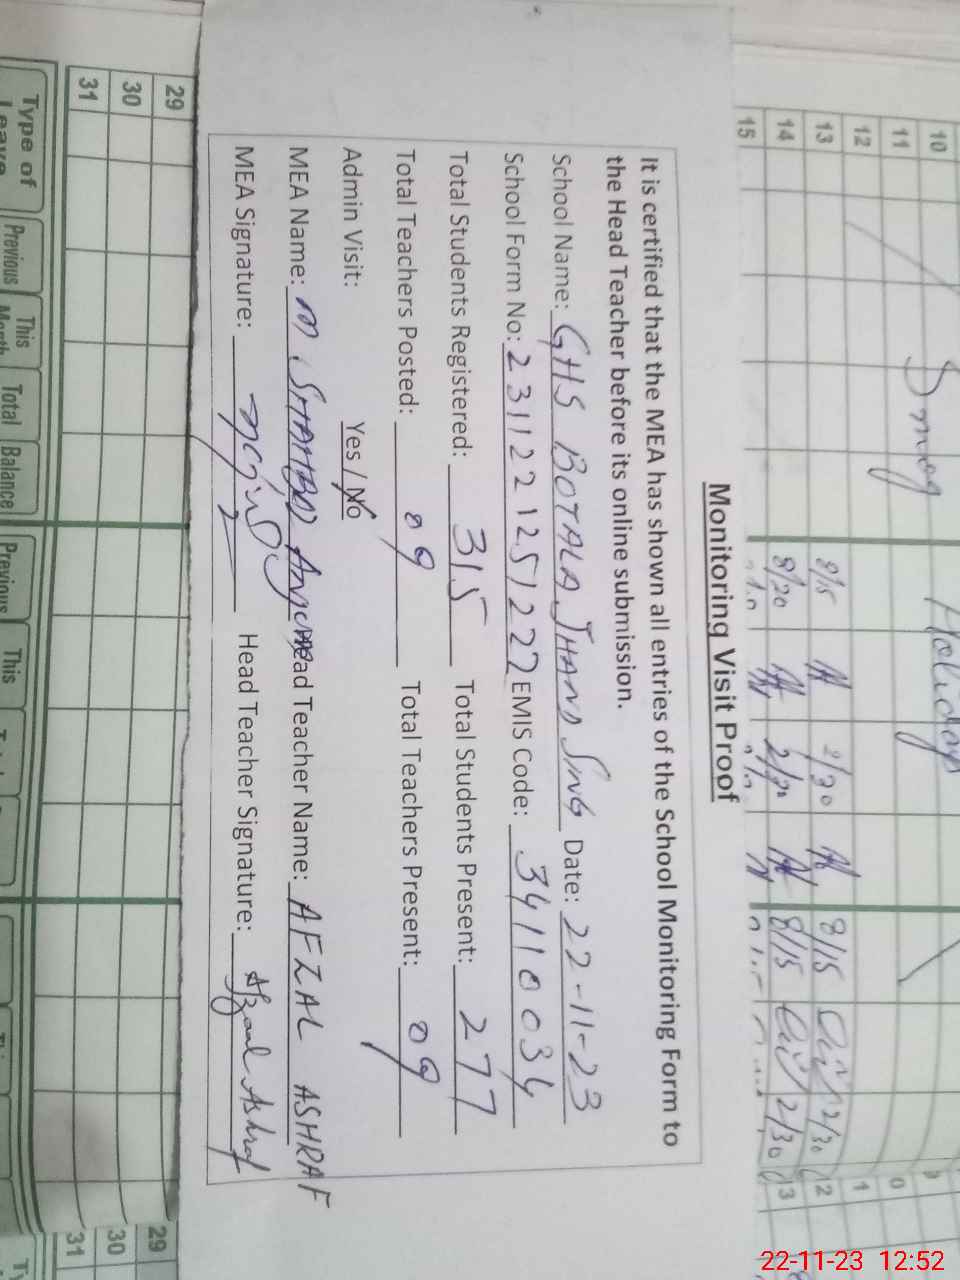 Monitoring Visit Proof
It is certified that the MEA has shown all entries of the School Monitoring Form to
the Head Teacher before its online submission.
School Name: GHS BOTALA JHAND SING Date: 22-11-23
School Form No: 2311221251222 EMIS Code: 34110034
Total Students Registered: 315 Total Students Present: 277
Total Teachers Posted: 09 Total Teachers Present: 09
Admin Visit: Yes / No
MEA Name: M. Head Teacher Name: AFZAL ASHRAF
MEA Signature: Head Teacher Signature: Afzaal Ashraf
10
11
12
13 8/15 2/30 8/15 2/30 2
14 8/20 2/30 8/15 2/30 3
15
Smog Holiday
0
1
29 29
30 30
31 31
Type of Leave Previous This Month Total Balance Previous This
22-11-23 12:52